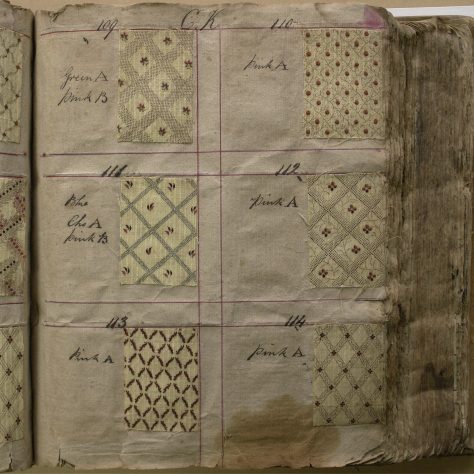 109 C.K 110
Green A
Pink B
Pink A
111 112
Blue
Pink B
Pink A
113 114
Pink A
Pink A